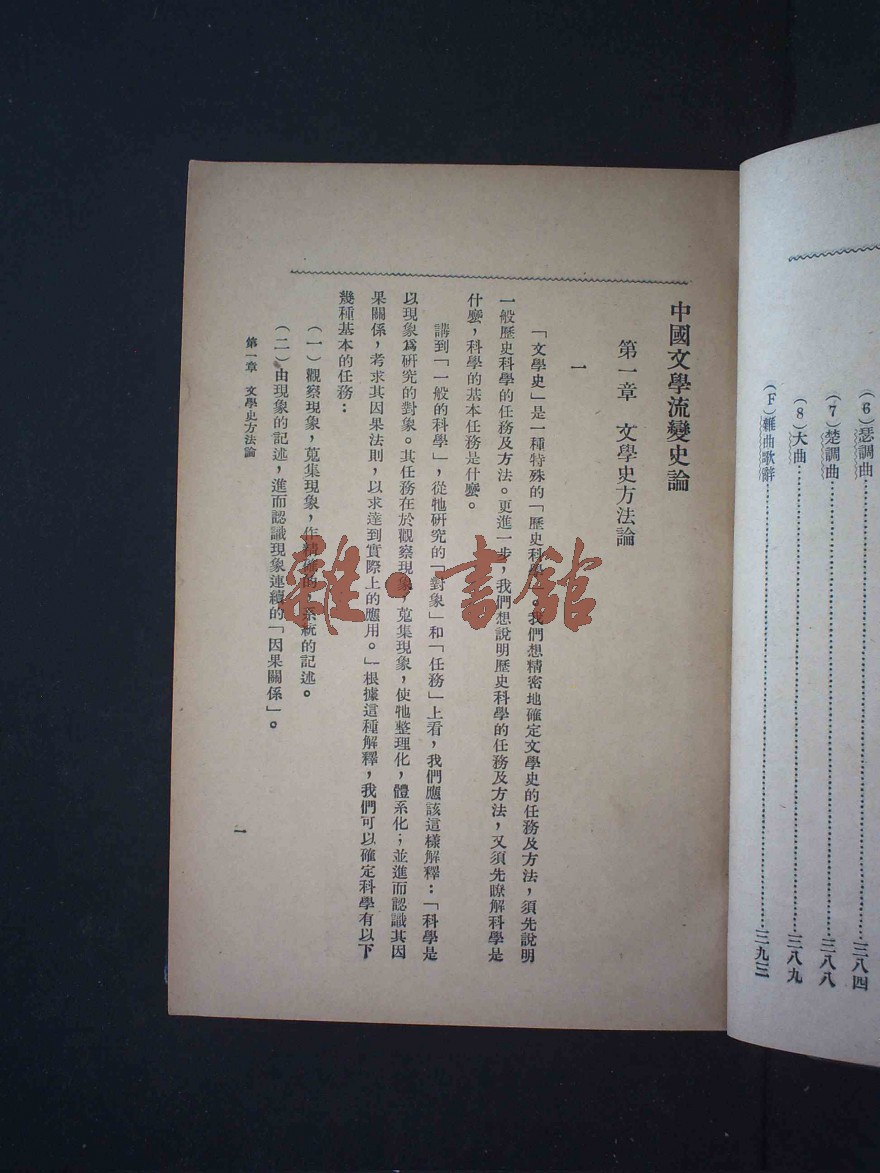 (6)瑟調曲……三八四
(7)楚調曲……三八八
(8)大曲……三八九
(F)雜曲歌辭……三九三
中國文學流變史論
第一章 文學史方法論
一
「文學史」是一種特殊的「歷史科學」。我們想精密地確定文學史的任務及方法,須先說明
一般歷史科學的任務及方法。更進一步,我們想說明歷史科學的任務及方法,又須先瞭解科學是
什麼,科學的基本任務是什麼。
講到「一般的科學」,從牠研究的「對象」和「任務」上看,我們應該這樣解釋:「科學是
以現象爲研究的對象。其任務在於觀察現象,蒐集現象,使牠整理化,體系化;並進而認識其因
果關係,考求其因果法則,以求達到實際上的應用。」根據這種解釋,我們可以確定科學有以下
幾種基本的任務:
(一)觀察現象,蒐集現象,作精確的,系統的記述。
(二)由現象的記述,進而認識現象連續的「因果關係」。
第一章 文學史方法論
一
雜·書館